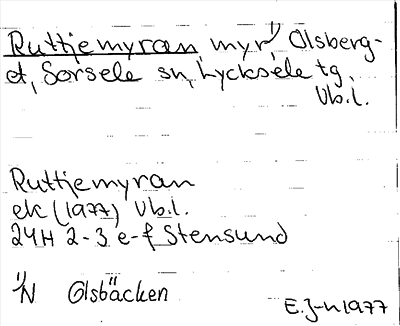 Ruttjemyran, myr¹⁾, Olsberg-
et, Sorsele sn, Lycksele tg.
Vb.l.
Ruttjemyran
ek (1977) Vb.l.
24H 2-3 e-f Stensund
¹⁾N Olsbäcken
E.J-n 1977